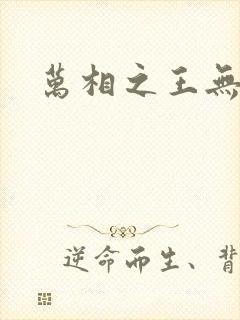 萬相之王無
逆命而生、背